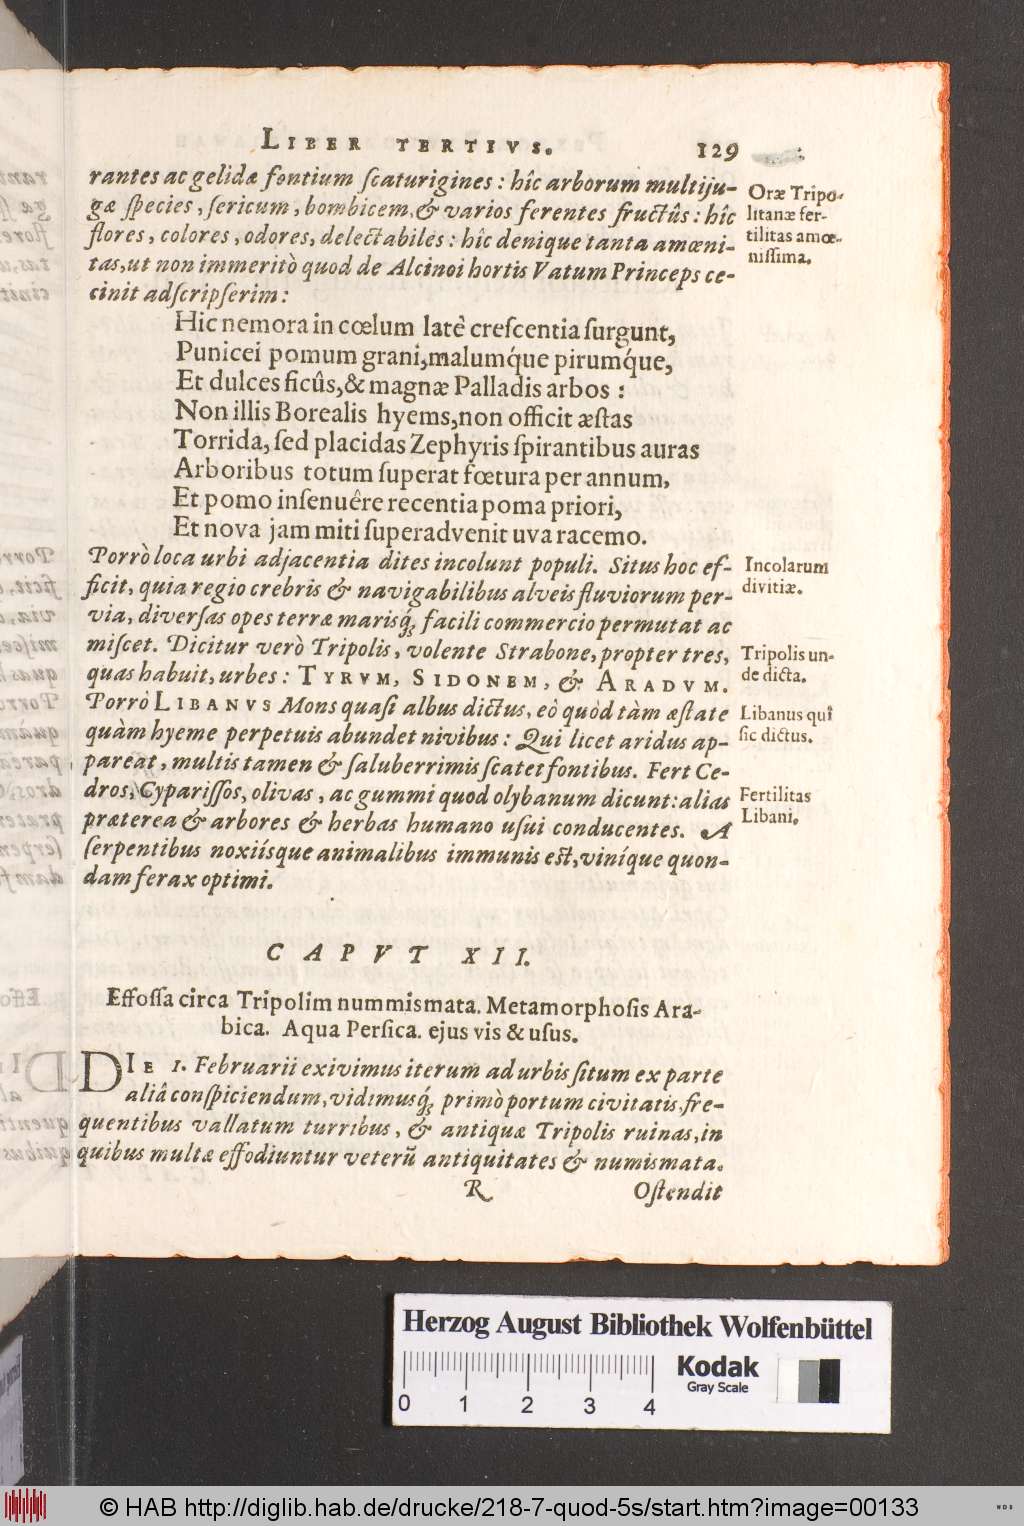 LIBER TERTIVS. 129
rantes ac gelidæ fontium ſcaturigines : hîc arborum multiju-
gæ ſpecies, ſericum, bombicem, & varios ferentes fructûs : hîc
flores, colores, odores, delectabiles : hîc denique tanta amœni-
tas, ut non immeritò quod de Alcinoi hortis Vatum Princeps ce-
cinit adſcripſerim :
Oræ Tripo-
litanæ fer-
tilitas amœ-
niſſima.
Hic nemora in cœlum latè creſcentia ſurgunt,
Punicei pomum grani, malumq́ue pirumq́ue,
Et dulces ficûs, & magnæ Palladis arbos :
Non illis Borealis hyems, non officit æſtas
Torrida, ſed placidas Zephyris ſpirantibus auras
Arboribus totum ſuperat fœtura per annum,
Et pomo inſenuêre recentia poma priori,
Et nova jam miti ſuperadvenit uva racemo.
Porrò loca urbi adjacentia dites incolunt populi. Situs hoc ef-
ficit, quia regio crebris & navigabilibus alveis fluviorum per-
via, diverſas opes terræ marisq́; facili commercio permutat ac
miſcet. Dicitur verò Tripolis, volente Strabone, propter tres,
quas habuit, urbes : TYRVM, SIDONEM, & ARADVM.
Porrò LIBANVS Mons quaſi albus dictus, eò quòd tàm æſtate
quàm hyeme perpetuis abundet nivibus : Qui licet aridus ap-
pareat, multis tamen & ſaluberrimis ſcatet fontibus. Fert Ce-
dros, Cypariſſos, olivas, ac gummi quod olybanum dicunt : alias
præterea & arbores & herbas humano uſui conducentes. A
ſerpentibus noxiísque animalibus immunis eſt, viníque quon-
dam ferax optimi.
Incolarum
divitiæ.
Tripolis un-
de dicta.
Libanus qui
ſic dictus.
Fertilitas
Libani.
CAPVT XII.
Effoſſa circa Tripolim nummismata. Metamorphoſis Ara-
bica. Aqua Perſica. ejus vis & uſus.
DIE 1. Februarii exivimus iterum ad urbis ſitum ex parte
aliâ conſpiciendum, vidimusq́; primò portum civitatis, fre-
quentibus vallatum turribus, & antiquæ Tripolis ruinas, in
quibus multæ effodiuntur veterũ antiquitates & numismata.
R Oſtendit
Herzog August Bibliothek Wolfenbüttel
0 1 2 3 4
Kodak
Gray Scale
© HAB http://diglib.hab.de/drucke/218-7-quod-5s/start.htm?image=00133